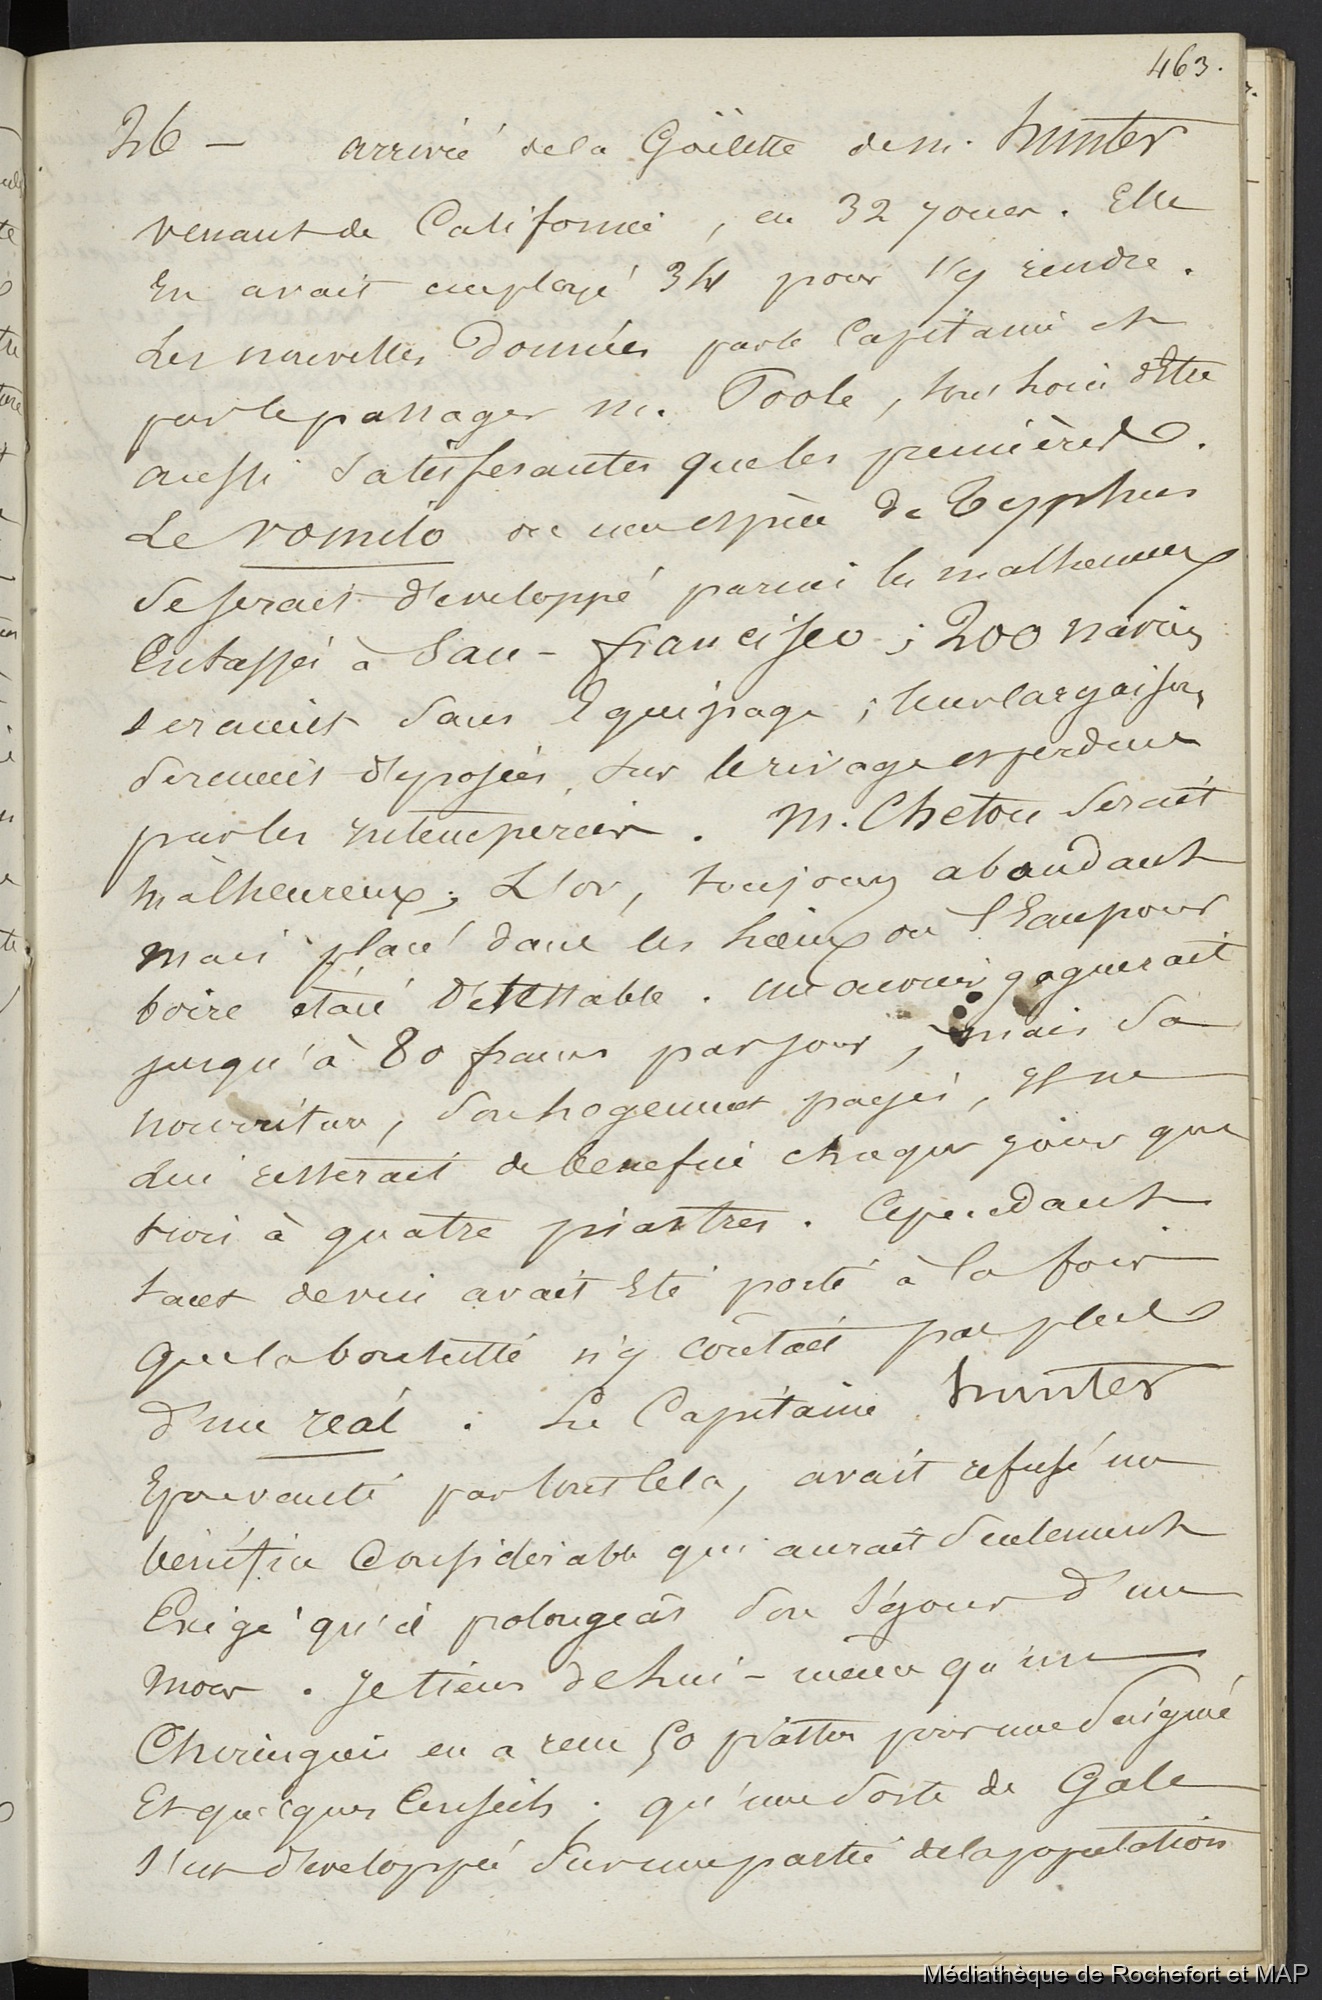 463.
26 — arrivée de la Goëlette de m. hunter
venant de Californie, en 32 jours. Elle
En avait employé 34 pour s'y rendre.
Les nouvelles données par le Capitaine et
par le passager m. Toole, sont loin d'Etre
aussi satisfesantes que les premières.
Le vomito ou une espèce de Typhus
se serait développé parmi les malheureux
Entassés à San-francisco ; 200 navires
seraient sans Equipage ; leurs cargaisons
seraient déposées sur le rivage et perdues
par les intempéries. M. Cheton serait
malheureux ; L'or, toujours abondant
mais placé dans les lieux où l'Eau pour
boire était détestable. un ouvrier gagnerait
jusqu'à 80 francs par jour ; mais sa
nourriture, son logement payés, il ne
lui resterait de bénéfice chaque jour que
trois à quatre piastres. Cependant
tant de vin avait Eté porté à la fois
que la bouteille n'y coûtait pas plus
d'un real. Le Capitaine hunter
Epouvanté par tout cela, avait refusé un
bénéfice Considérable qui aurait seulement
Exigé qu'il prolongeât son séjour d'un
mois. Je tiens de lui-même qu'un
Chirurgien en a reçu 50 piastres pour une saignée
Et quelques Conseils ; qu'une sorte de Gale
s'est développée sur une partie de la population
Médiathèque de Rochefort et MAP